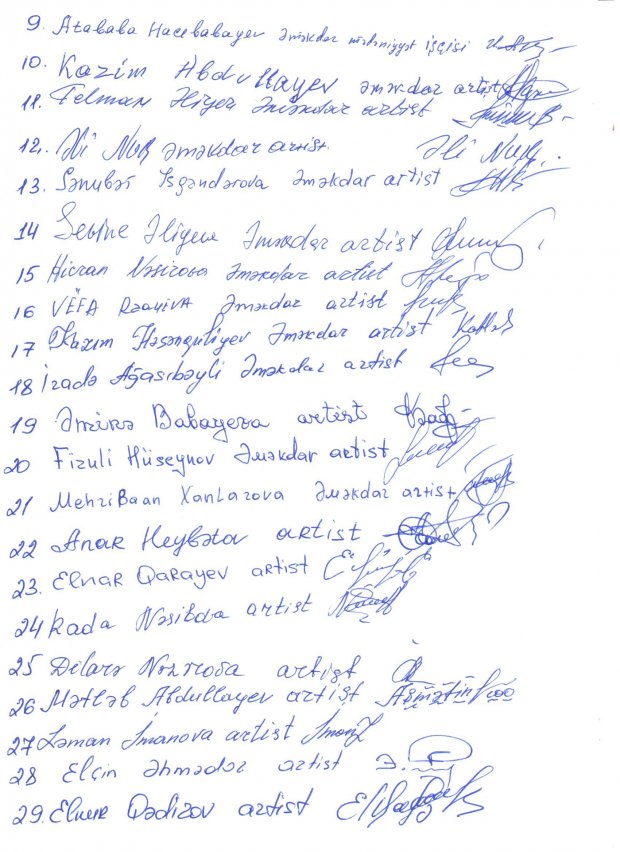 9. Atababa Hacıbabayev Əməkdar mədəniyyət işçisi
10. Kazim Abdullayev əməkdar artist
11. Telman Əliyev Əməkdar artist
12. Əli Nur əməkdar artist. Əli Nur
13. Sənubər İsgəndərova Əməkdar artist
14 Sevinc Əliyeva Əməkdar artist
15 Hicran Nəsirova Əməkdar artist
16 VÉFA Rəayivа Əməkdar artist
17 Kazım Həsənquliyev Əməkdar artist
18 İradə Ağasıbəyli Əməkdar artist
19 Əminə Babayeva artist
20 Fizuli Hüseynov Əməkdar artist
21 Mehribaan Xanlarova Əməkdar artist
22 Anar Heybətov artist
23. Elnar Qarayev artist
24 Rada Nəsibova artist
25 Dilarə Nəzirova artist
26 Mətləb Abdullayev artist
27 Ləman İmanova artist
28 Elçin Əhmədov artist
29. Elnur Qədirov artist